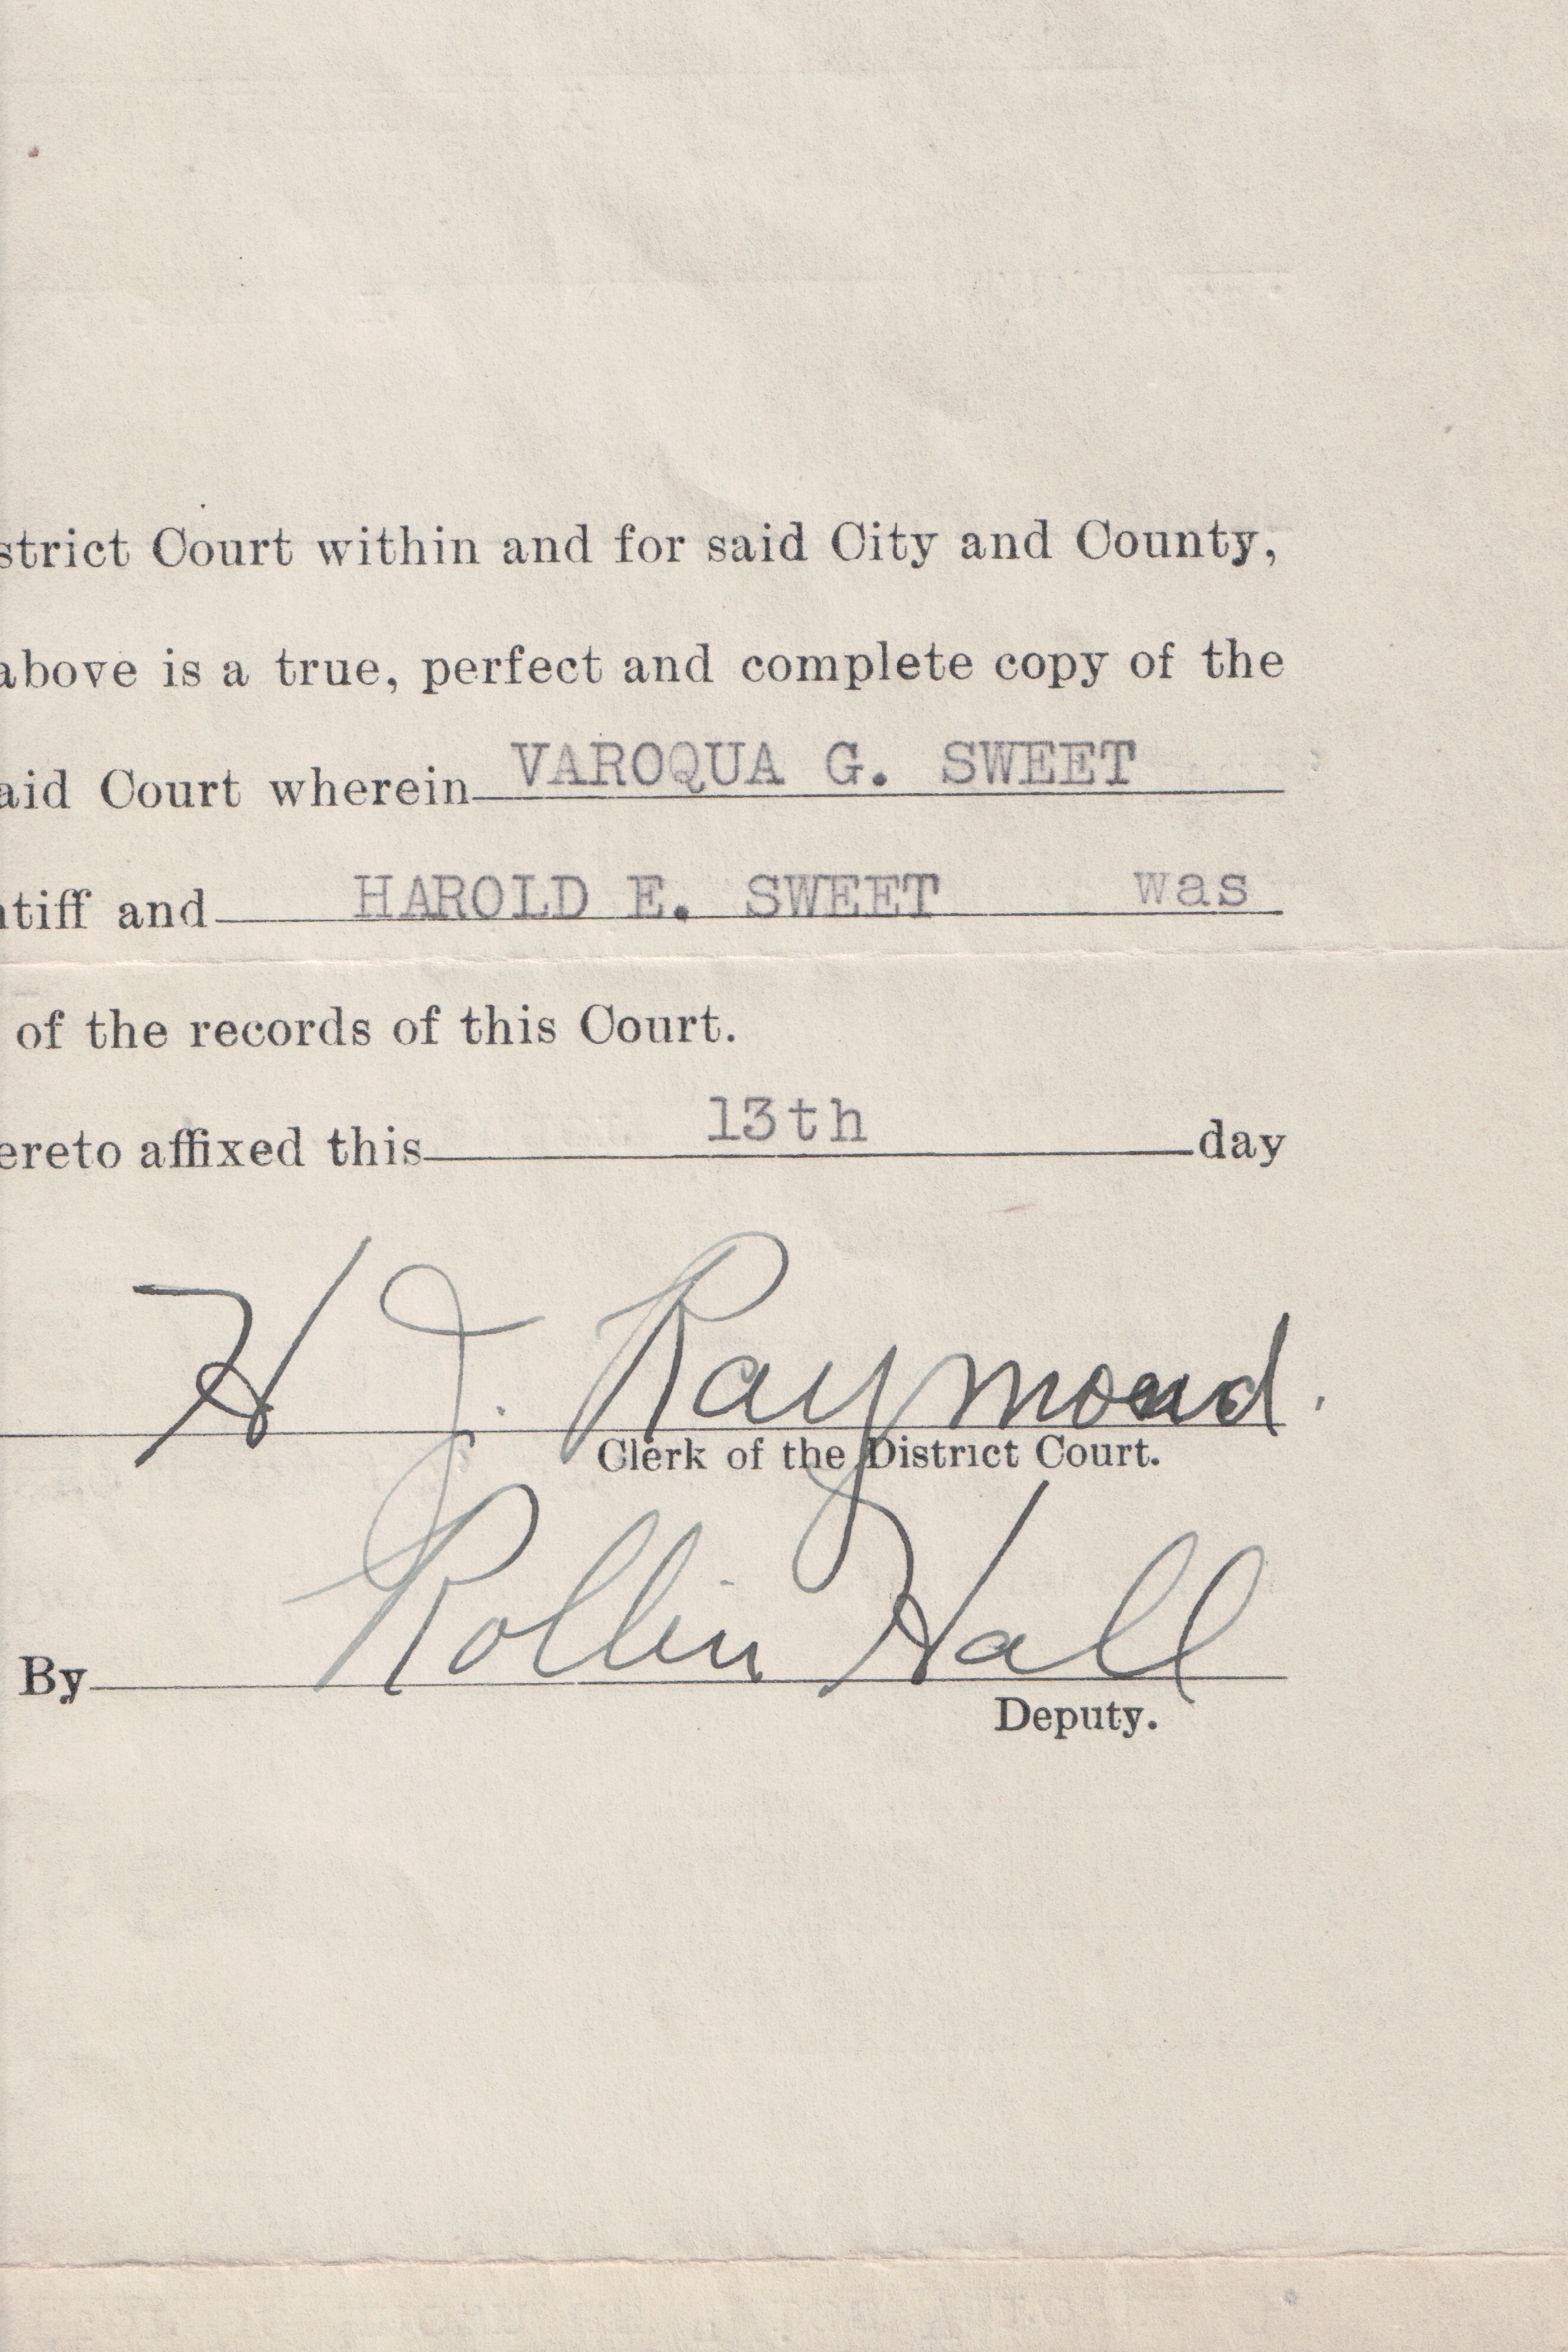 strict Court within and for said City and County,
above is a true, perfect and complete copy of the
aid Court wherein VAROQUA G. SWEET
ntiff and HAROLD E. SWEET was
of the records of this Court.
ereto affixed this 13th day
H J. Raymond.
Clerk of the District Court.
By Rollin Hall
Deputy.